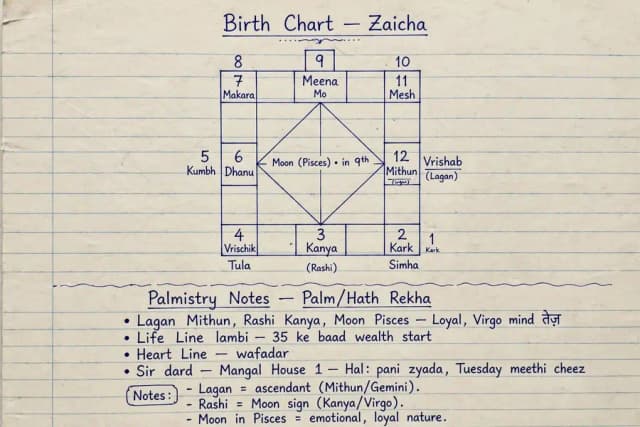 Birth Chart — Zaicha
8 9 10
7 Meena 11
Makara Mo Mesh
5 6 Moon (Pisces) • in 9th 12 Vrishab
Kumbh Dhanu Mithun (Lagan)
4 3 2 1
Vrischik Kanya Kark Kark
Tula (Rashi) Simha
Palmistry Notes — Palm/Hath Rekha
• Lagan Mithun, Rashi Kanya, Moon Pisces — Loyal, Virgo mind तेज़
• Life Line lambi — 35 ke baad wealth start
• Heart Line — wafadar
• Sir dard — Mangal House 1 — Hal: pani zyada, Tuesday meethi cheez
Notes: - Lagan = ascendant (Mithun/Gemini).
- Rashi = Moon sign (Kanya/Virgo).
- Moon in Pisces = emotional, loyal nature.